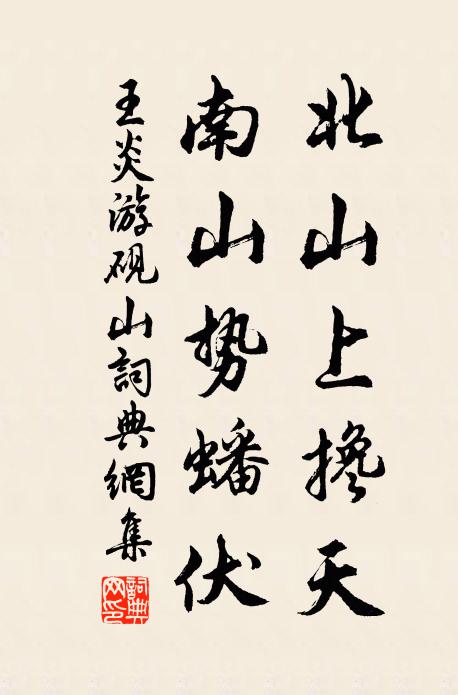 北山上搀天
南山势蟠伏
王炎游砚山詞典網集
詞典网印